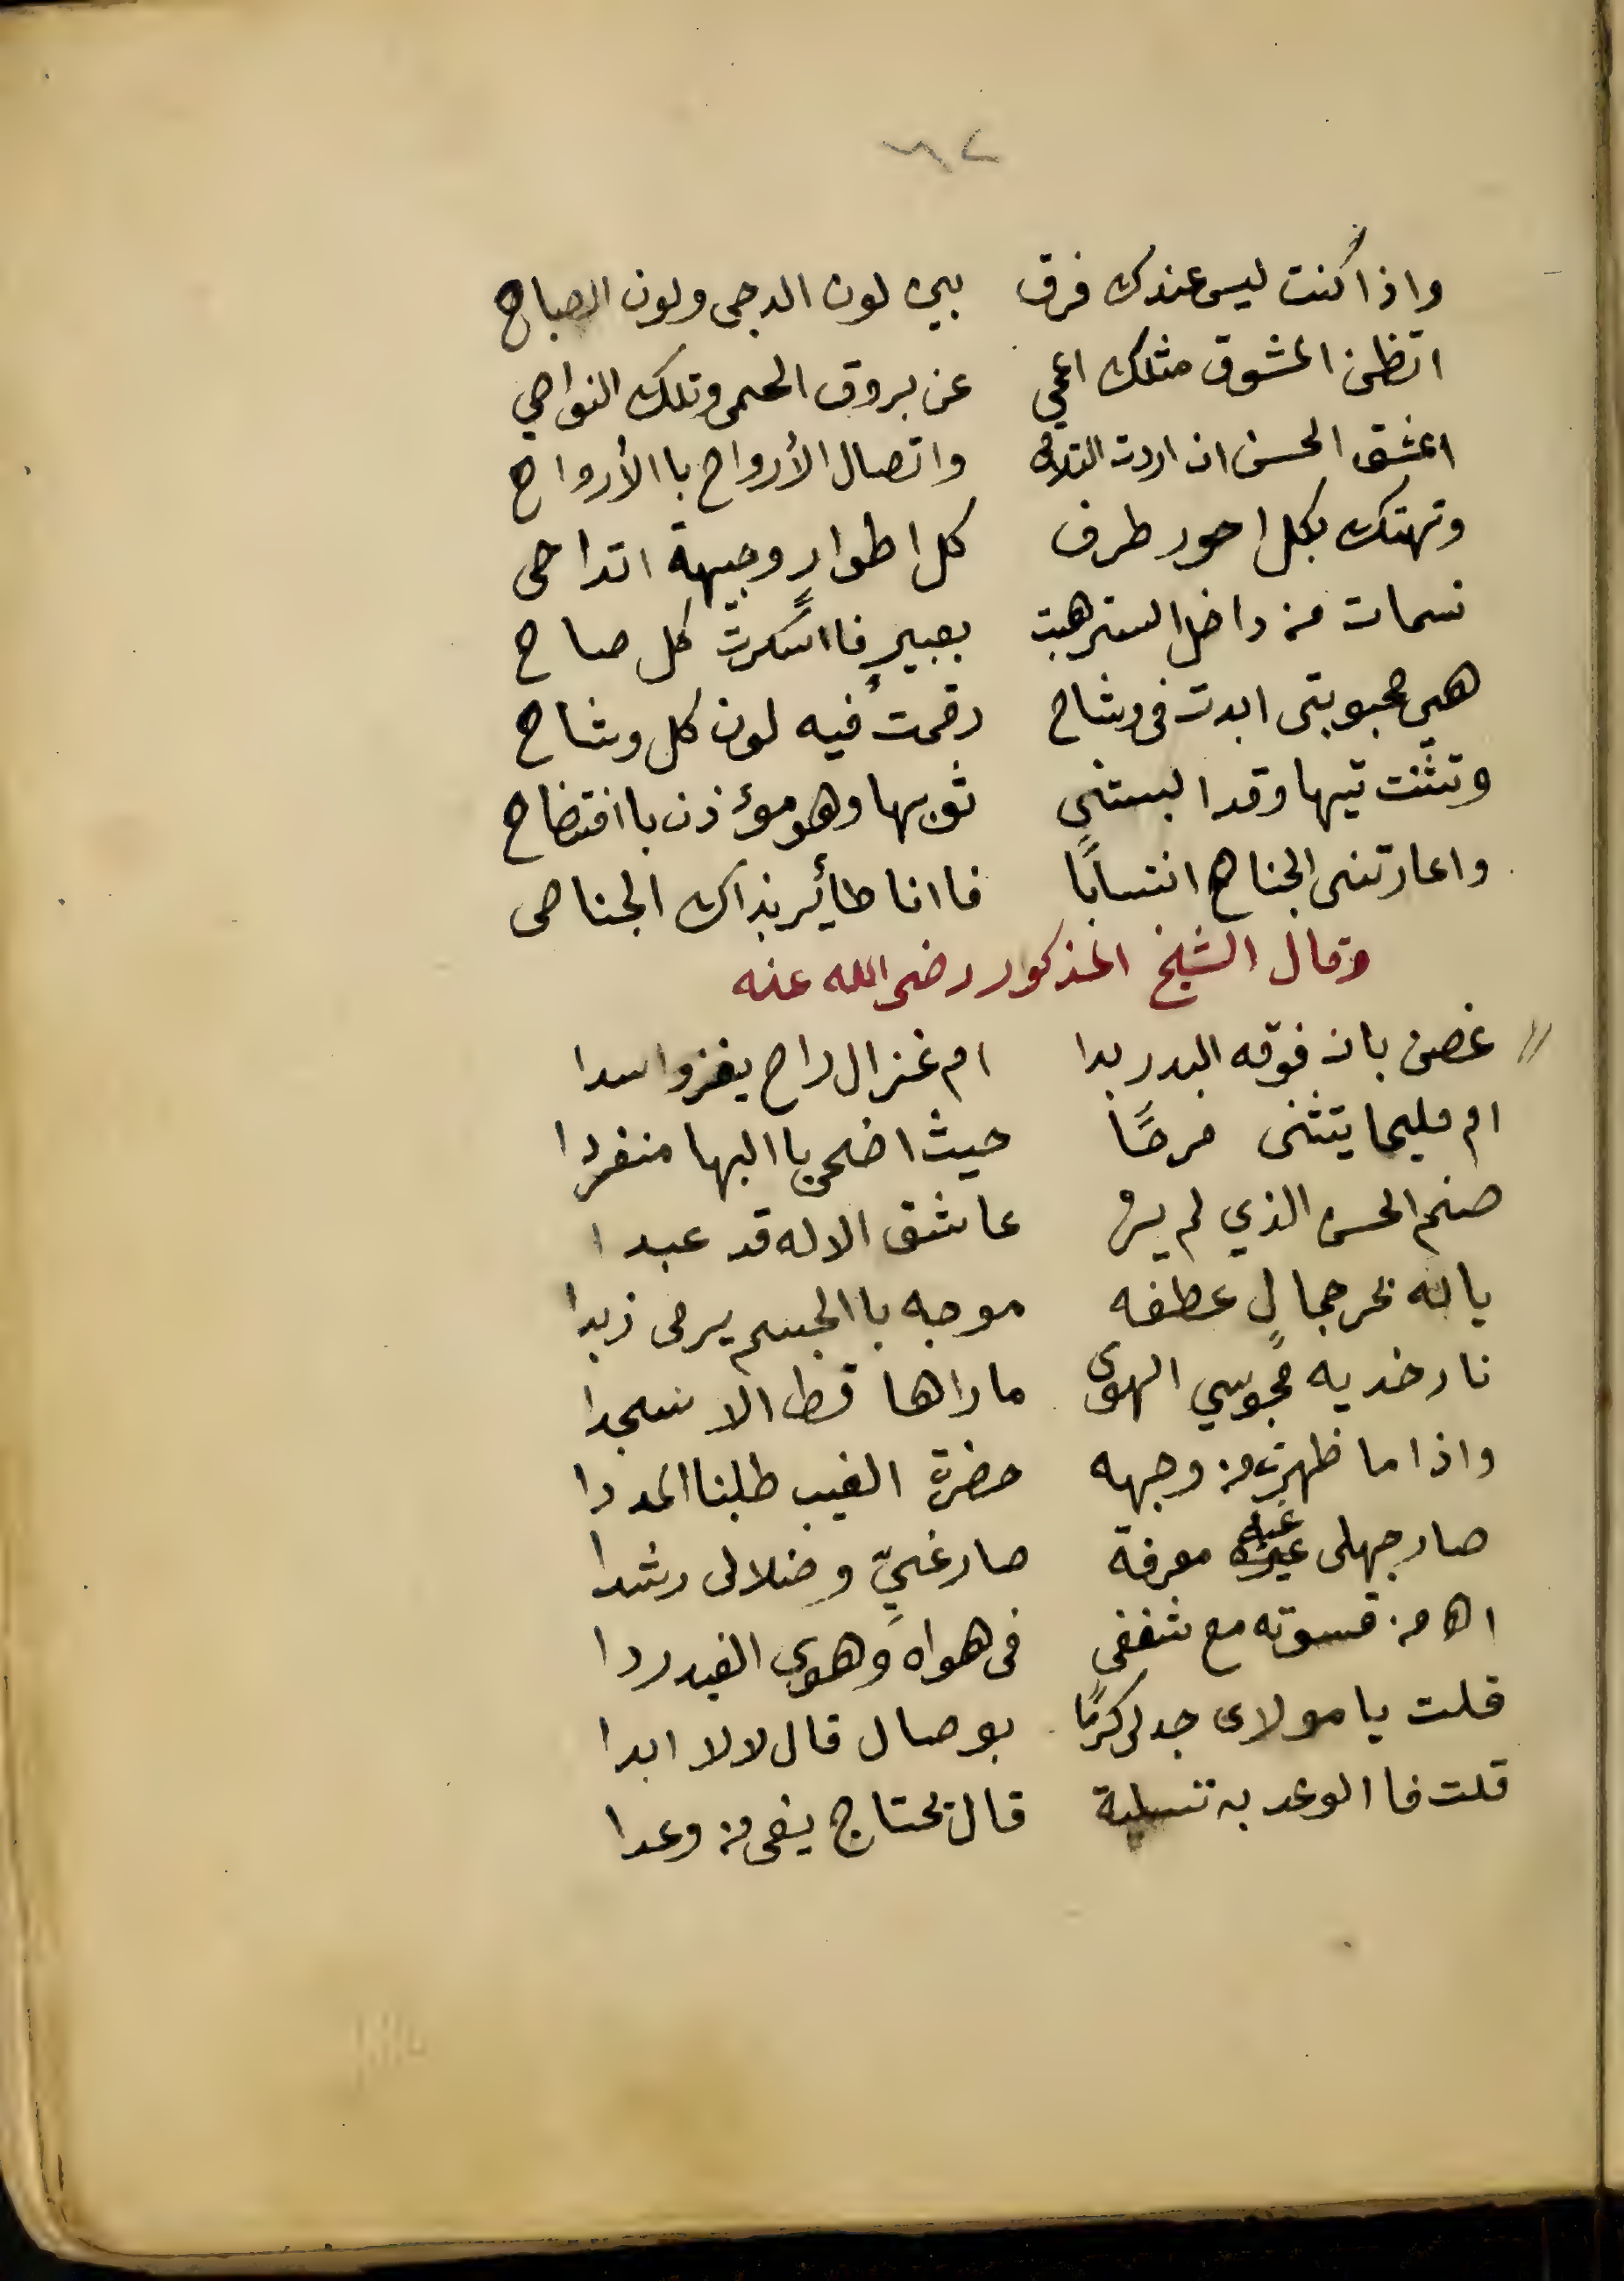 ٦٢
واذا كنت ليس عندك فرق بين لون الدجى ولون الصباح
اتظن المشوق مثلك اعمي عن بروق الحمى وتلك النواحي
اعشق الحسن ان اردت التلاقى واتصال الأرواح باالأرواح
وتهتك بكل احور طرف كل اطوارٍ وجيهة اتداحى
نسمات من داخل الستر هبت بعبيرٍ فااسكرتْ كل صاح
هي محبوبتى ابدت فى وشاح رقمت فيه لون كل وشاح
وتثنت تيها وقد البستني ثوبها وهو مؤذن باافتضاح
واعارتنى الجناح انتسابًا فاانا طائر بذاك الجناحى
وقال الشيخ المذكور رضى الله عنه
غصن بان فوقه البدر بدا ام غزال راح يغزو اسدا
ام مليحا يتثنى مرحًا حيث اضحى باالبها منفردا
صنم الحسن الذي لم يره عاشق الا له قد عبدا
ياله بحر جمالٍ عطفه موجه باالجسم يرمى زبدا
نار خديه مجوسي الهوى ماراها قط الا سجدا
واذا ما ظهرت من وجهه حضرة الغيب طلبنا المددا
صار جهلى غيه معرفة صار غيّي وضلالى رشدا
اه من قسوته مع شغفى فى هواه وهوى الغيد ردا
قلت يا مولاى جد لى كرمًا بوصال قال لا لا ابدا
قلت فاالوعد به تسلية قال تحتاج يفى من وعدا